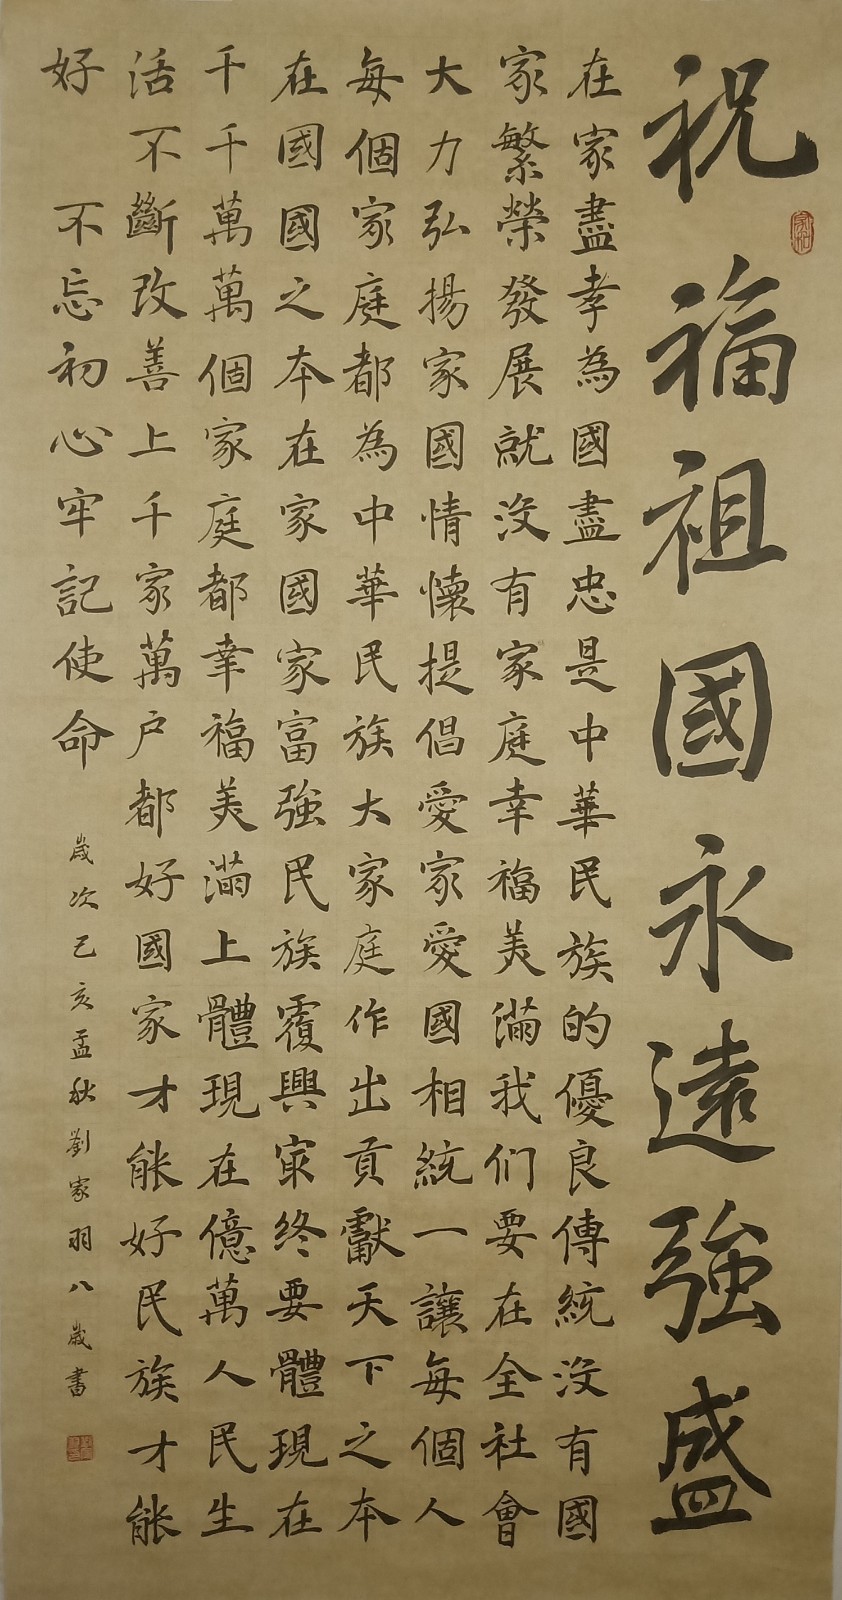 祝福祖國永遠強盛
在家盡孝為國盡忠是中華民族的優良傳統没有國
家繁榮發展就没有家庭幸福美滿我们要在全社會
大力弘揚家國情懷提倡愛家愛國相統一讓每個人
每個家庭都為中華民族大家庭作出貢獻天下之本
在國國之本在家國家富強民族覆興㝡终要體現在
千千萬萬個家庭都幸福美滿上體現在億萬人民生
活不斷改善上千家萬户都好國家才能好民族才能
好 不忘初心牢記使命
歲次己亥孟秋劉家羽八歲書